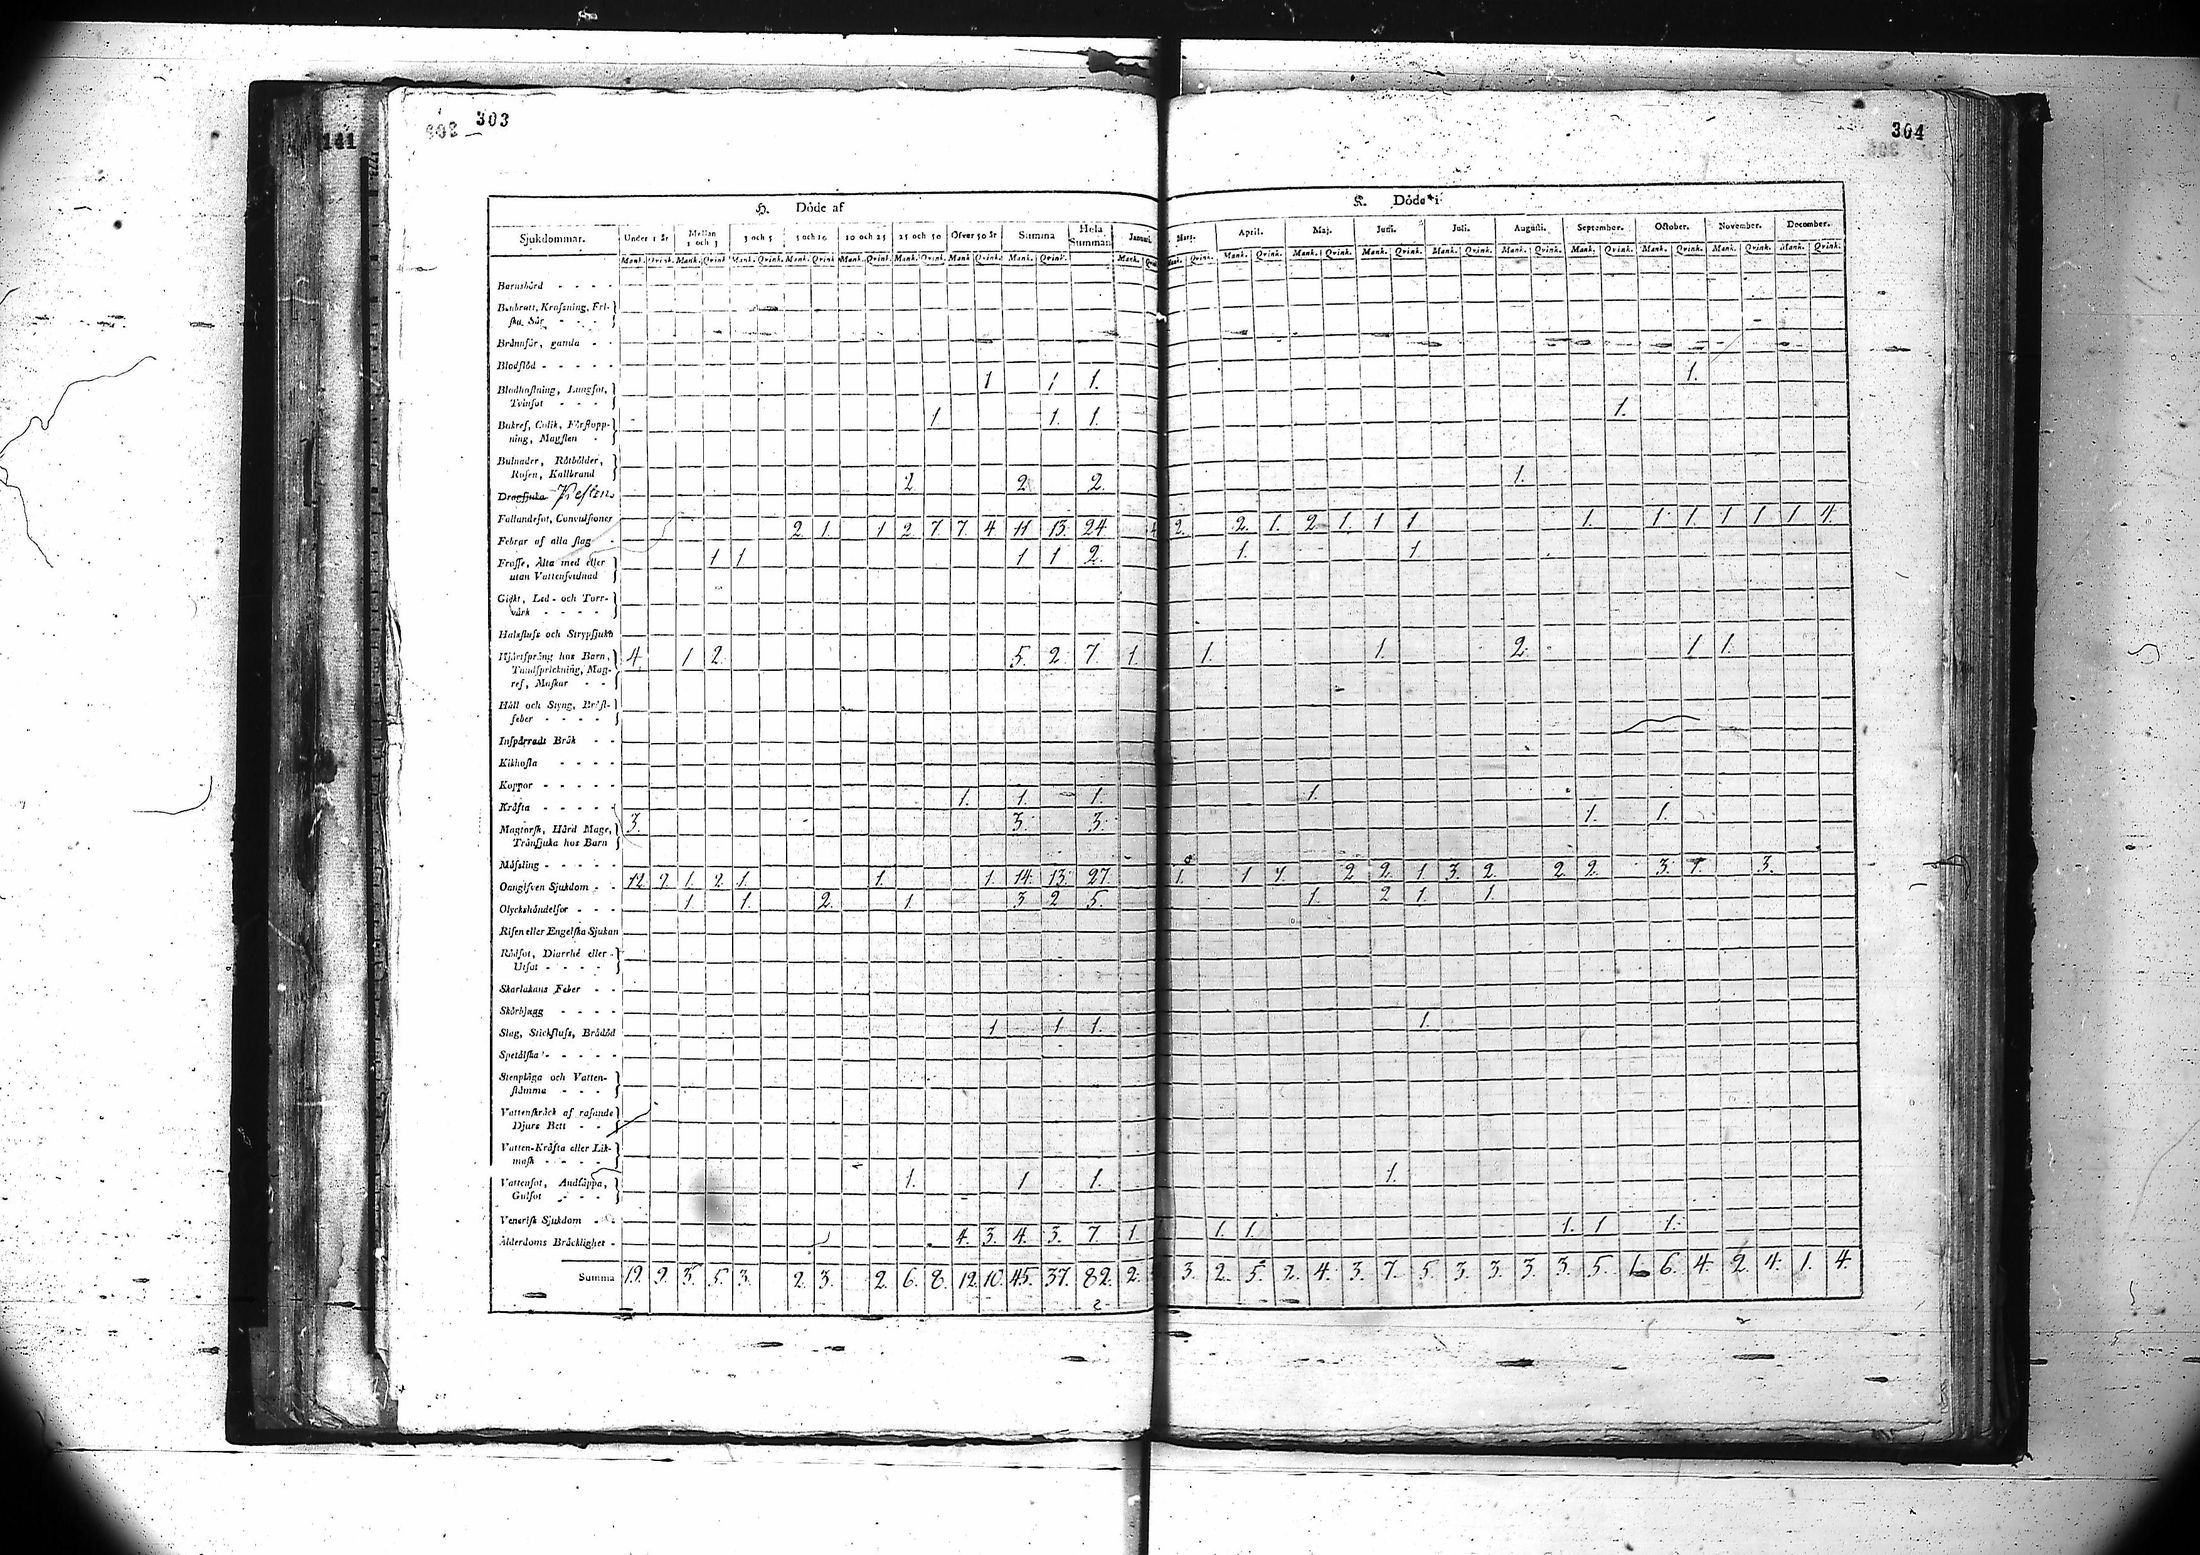 303
304
141
H. Döde af
K. Döde i
Sjukdommar. Under 1 år Mellan 1 och 3 3 och 5 5 och 10 10 och 25 25 och 50 Öfver 50 år Summa Hela Summan Januari. Mars. April. Maj. Juni. Juli. Augusti. September. October. November. December.
Mank. Qvink. Mank. Qvink. Mank. Qvink. Mank. Qvink. Mank. Qvink. Mank. Qvink. Mank. Qvink. Mank. Qvink. Mank. Mank. Qvink. Mank. Qvink. Mank. Qvink. Mank. Qvink. Mank. Qvink. Mank. Qvink. Mank. Qvink. Mank. Qvink. Mank. Qvink. Mank. Qvink.
Barnsbörd - - - -
Benbrott, Krossning, Fri-
ska Sår - - -
Brånnsår, ganda - -
Blodflöd - - - - -
Blodhostning, Lungsot, 1 1 1. 1.
Tvinsot - - -
Bukref, Colik, Förstopp- 1 1. 1. 1.
ning, Magsten -
Bulnader, Rötbölder,
Rosen, Kallbrand
Dragsjuka Pesten 2 2 2. 1.
Fallandesot, Convulsioner
Febrar af alla slag - 2. 1. 1 2. 7. 7. 4 11 13. 24 2. 2. 1. 2 1. 1 1 1. 1. 1. 1 1 1 4.
Frosse, Älta med eller 1 1 1 1 2. 1. 1.
utan Vattensvulnad
Gickt, Led- och Torr-
värk - - - -
Halsfluss och Strypsjuka
Hjärtsprång hos Barn, 4. 1 2. 5. 2. 7. 1. 1. 1. 2. 1 1.
Tandsprickning, Mag-
ref, Maskar - -
Håll och Styng, Bröst-
feber - - - -
Inspärradt Bråk - -
Kikhosta - - - -
Koppor - - - - -
Kräfta - - - - - 1. 1. 1. 1.
Magtorsk, Hård Mage, 3. 3. 3. 1. 1.
Trånsjuka hos Barn
Mässling - - - - -
Oangifven Sjukdom - - 12. 9. 1. 2. 1. 1. 1. 14. 13. 27. 1. 1 2 2. 1 3. 2. 2. 2. 3. 3.
Olyckshändelser - - - 1 1. 2. 1. 3 2 5. 1. 2 1. 1.
Risen eller Engelska Sjukan
Rödsot, Diarrhé eller
Utsot - - - - -
Skarlakans Feber - -
Skörbjugg - - - -
Slag, Stickfluss, Brådöd 1 1 1. 1.
Spetälska - - - - -
Stenplåga och Vatten-
stämma - - -
Vattenskräck af rasande
Djurs Bett - -
Vatten-Kräfta eller Lik-
mask - - - -
Vattensot, Andtäppa, 1. 1 1. 1.
Gulsot - - -
Venerisk Sjukdom - -
Ålderdoms Bräcklighet - 4. 3. 4. 3. 7. 1. 1. 1. 1. 1 1.
Summa 19. 9. 3. 5. 3. 2. 3. 2. 6. 8. 12. 10. 45. 37. 82. 2. 3. 2. 5. 2. 4. 3. 7. 5. 3. 3. 3. 3. 5. 1. 6. 4. 2. 4. 1. 4.